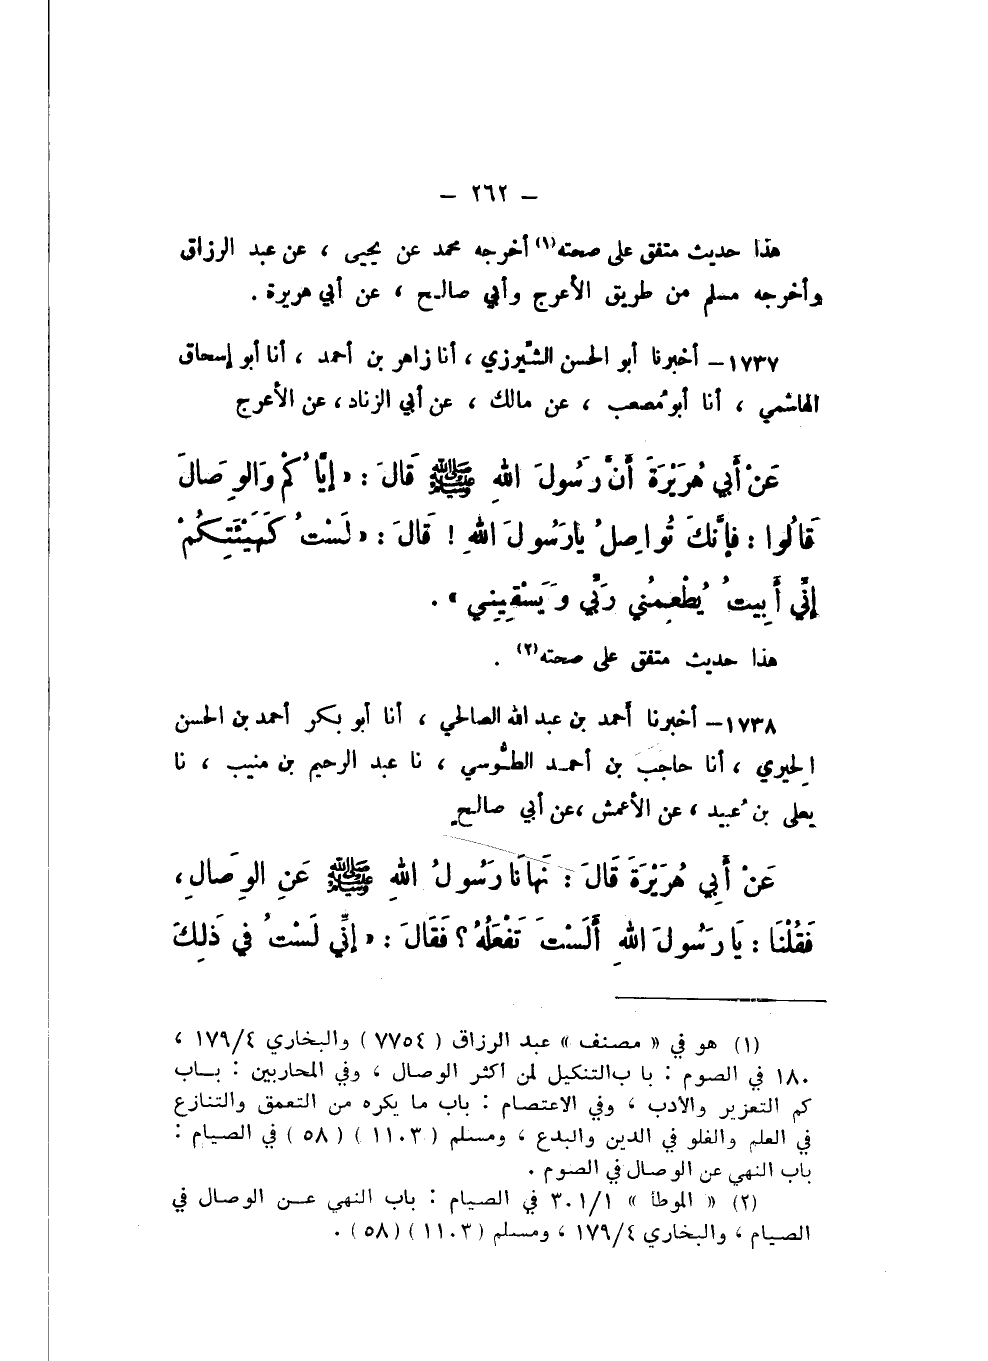 – ٢٦٢ –
هذا حديث متفق على صحته(١) أخرجه محمد عن يحيى ، عن عبد الرزاق
وأخرجه مسلم من طريق الأعرج وأبي صالح ، عن أبي هريرة .
١٧٣٧ – أخبرنا أبو الحسن الشّيرزي ، أنا زاهر بن أحمد ، أنا أبو إسحاق
الهاشمي ، أنا أبو مُصعب ، عن مالك ، عن أبي الزناد ، عن الأعرج
عَنْ أَبِي هُرَيْرَةَ أَنَّ رَسُولَ اللهِ ﷺ قَالَ : « إِيَّاكُمْ وَالوِصَالَ
قَالُوا : فَإِنَّكَ تُواصِلُ يارَسُولَ اللهِ ! قَالَ : « لَسْتُ كَهَيْئَتِكُمْ
إِنِّي أَبِيتُ يُطْعِمُني رَبِّي وَيَسْقِينِي » .
هذا حديث متفق على صحته(٢) .
١٧٣٨ – أخبرنا أحمد بن عبد الله الصالحي ، أنا أبو بكر أحمد بن الحسن
الحِيري ، أنا حاجب بن أحمد الطُّوسي ، نا عبد الرحيم بن منيب ، نا
يعلى بن عُبيد ، عن الأعمش ، عن أبي صالح
عَنْ أَبِي هُرَيْرَةَ قَالَ : نَهَانَا رَسُولُ اللهِ ﷺ عَنِ الوِصَالِ ،
فَقُلْنَا : يَا رَسُولَ اللهِ أَلَسْتَ تَفْعَلُهُ ؟ فَقَالَ : « إِنِّي لَسْتُ في ذَلِكَ
(١) هو في « مصنف » عبد الرزاق ( ٧٧٥٤ ) والبخاري ١٧٩/٤ ،
١٨٠ في الصوم : باب التنكيل لمن أكثر الوصال ، وفي المحاربين : بـاب
كم التعزير والأدب ، وفي الاعتصام : باب ما يكره من التعمق والتنازع
في العلم والغلو في الدين والبدع ، ومسلم ( ١١٠٣ ) ( ٥٨ ) في الصيام :
باب النهي عن الوصال في الصوم .
(٢) « الموطأ » ٣٠١/١ في الصيام : باب النهي عـن الوصال في
الصيام ، والبخاري ١٧٩/٤ ، ومسلم (١١٠٣) (٥٨) .